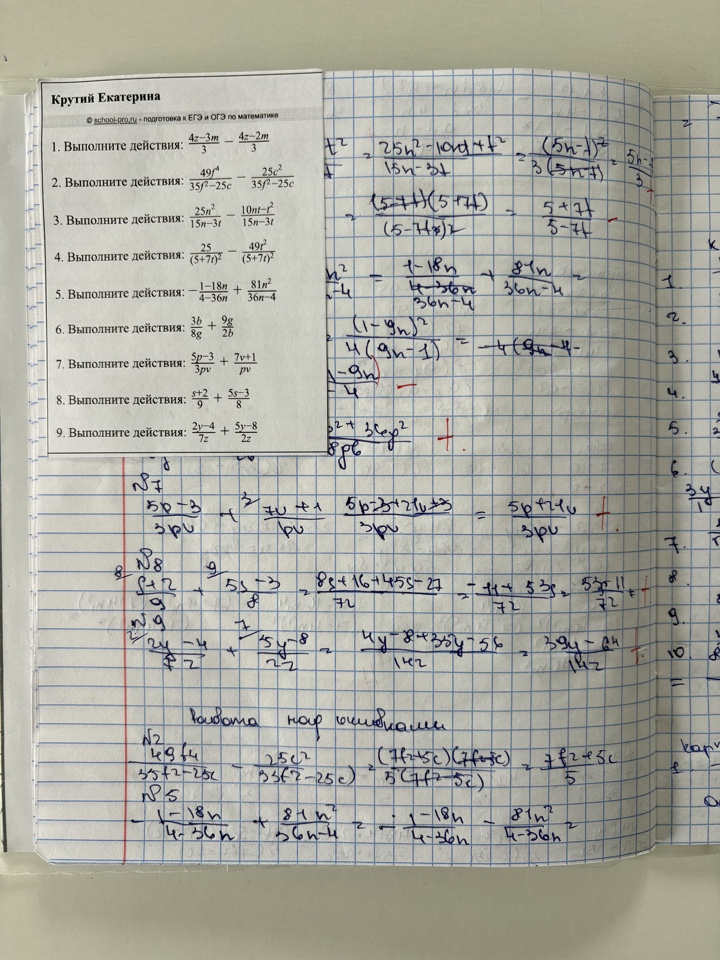 Крутий Екатерина
© school-pro.ru - подготовка к ЕГЭ и ОГЭ по математике
1. Выполните действия: (4z−3m)/3 − (4z−2m)/3
2. Выполните действия: 49f⁴/(35f²−25c) − 25c²/(35f²−25c)
3. Выполните действия: 25n²/(15n−3t) − (10nt−t²)/(15n−3t)
4. Выполните действия: 25/(5+7t)² − 49t²/(5+7t)²
5. Выполните действия: −(1−18n)/(4−36n) + 81n²/(36n−4)
6. Выполните действия: 3b/8g + 9g/2b
7. Выполните действия: (5p−3)/3pv + (7v+1)/pv
8. Выполните действия: (s+2)/9 + (5s−3)/8
9. Выполните действия: (2y−4)/7z + (5y−8)/2z
= (25n²−10nt+t²)/(15n−3t) = (5n−t)²/3(5n−t) =
= (5−7t)(5+7t)/(5−7t)² = (5+7t)/(5−7t)
= (1−18n)/(36n−4) + 81n/(36n−4) =
(1−9n)²/4(9n−1) =
№7
(5p−3)/3pv + (7v+1)/pv (5p−3+21v+3)/3pv = (5p+21v)/3pv +.
№8
(s+2)/9 + (5s−3)/8 = (8s+16+45s−27)/72 = (−11+53s)/72 = (53s−11)/72 +
№9
(2y−4)/7z + (5y−8)/2z = (4y−8+35y−56)/14z = (39y−64)/14z +.
Работа над ошибками
№2
49f4/(35f2−25c) − 25c²/(35f2−25c) = (7f2+5c)(7f2−5c)/5(7f2−5c) = (7f2+5c)/5
№5
−(1−18n)/(4−36n) + 81n²/(36n−4) = −(1−18n)/(4−36n) − 81n²/(4−36n) =
1.
2.
3.
4.
5.
6.
7.
8.
9.
10.